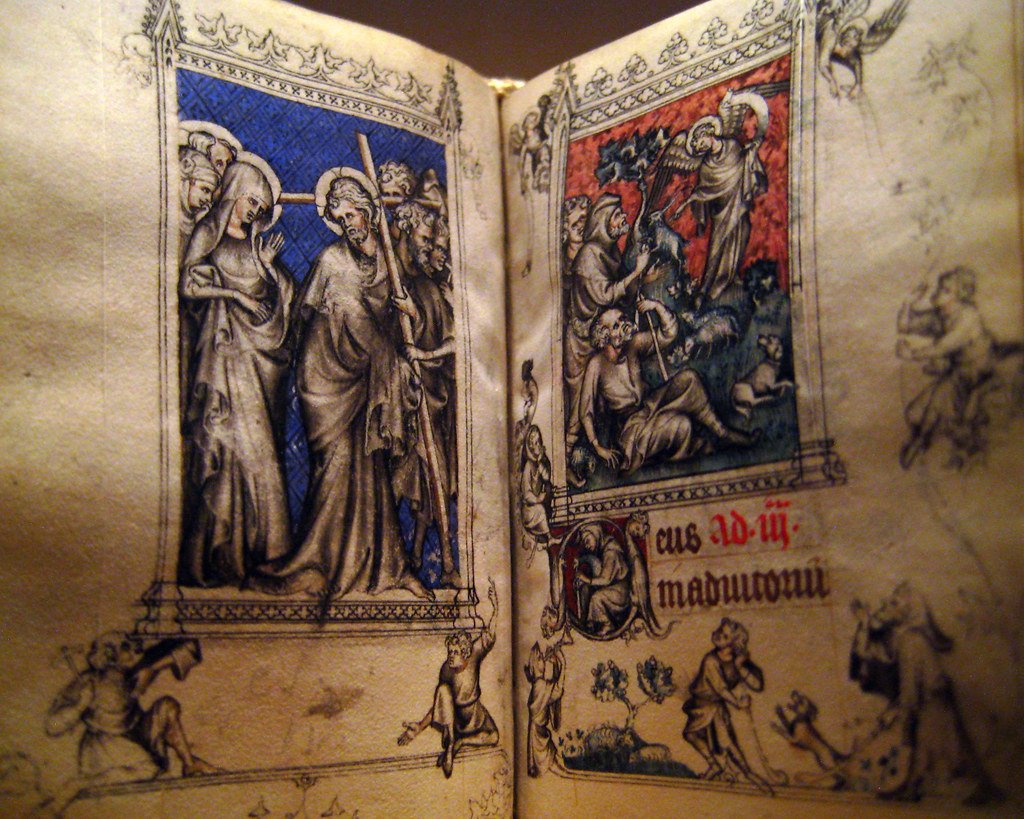 Deus Ad .iij.
in adiutoriū